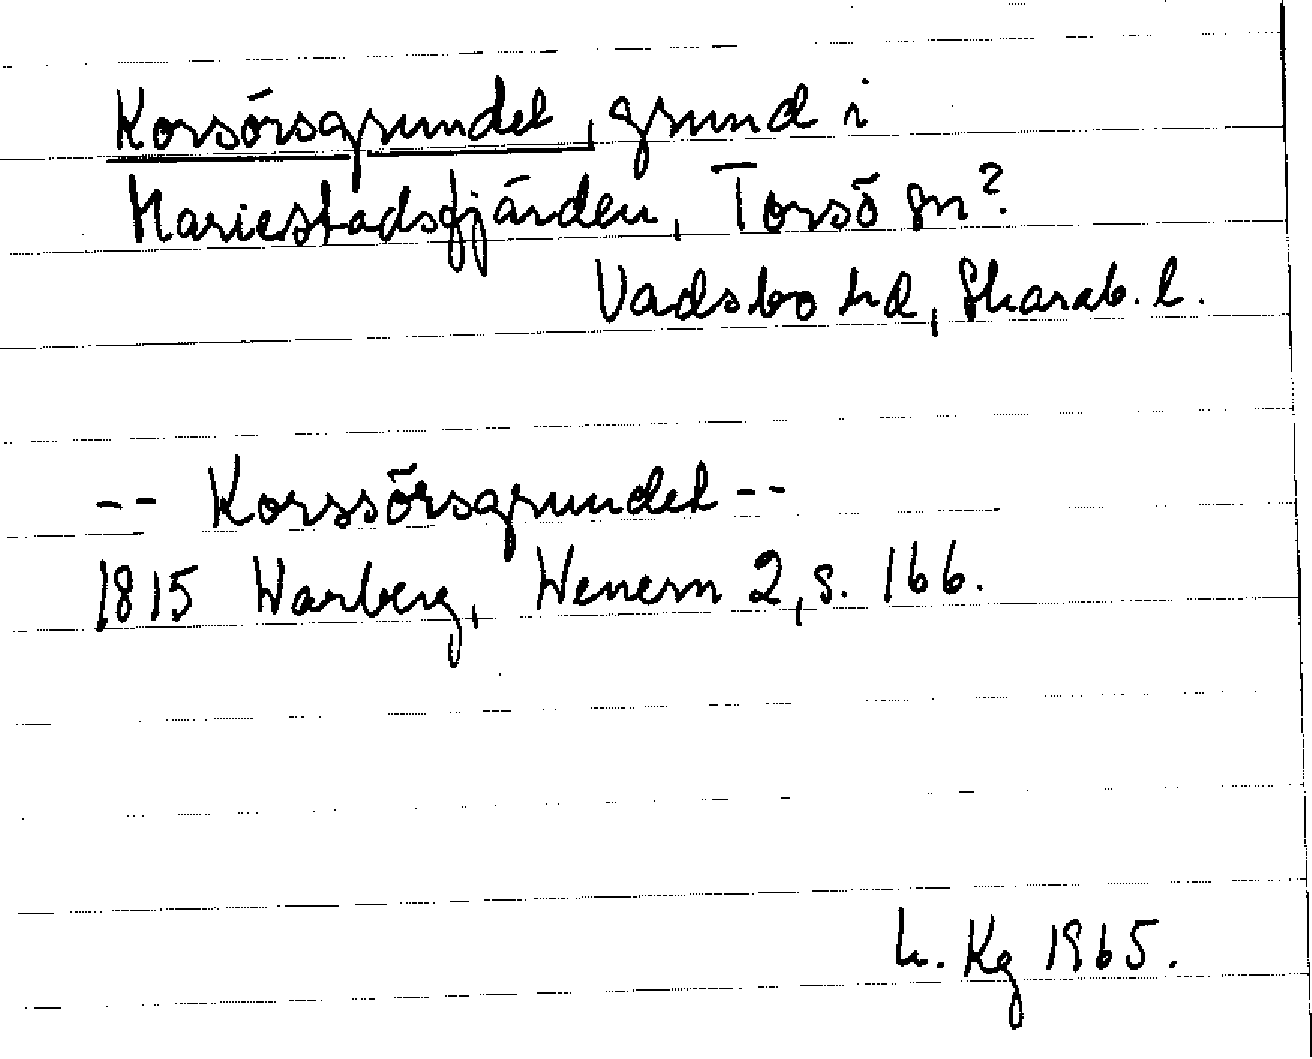 Korsörsgrundet, grund i
Mariestadsfjärden, Torsö sn?
Vadsbo hd, Skarab. l.
-- Korssörsgrundet --
1815 Warberg, Wenern 2, s. 166.
h. Kg 1965.